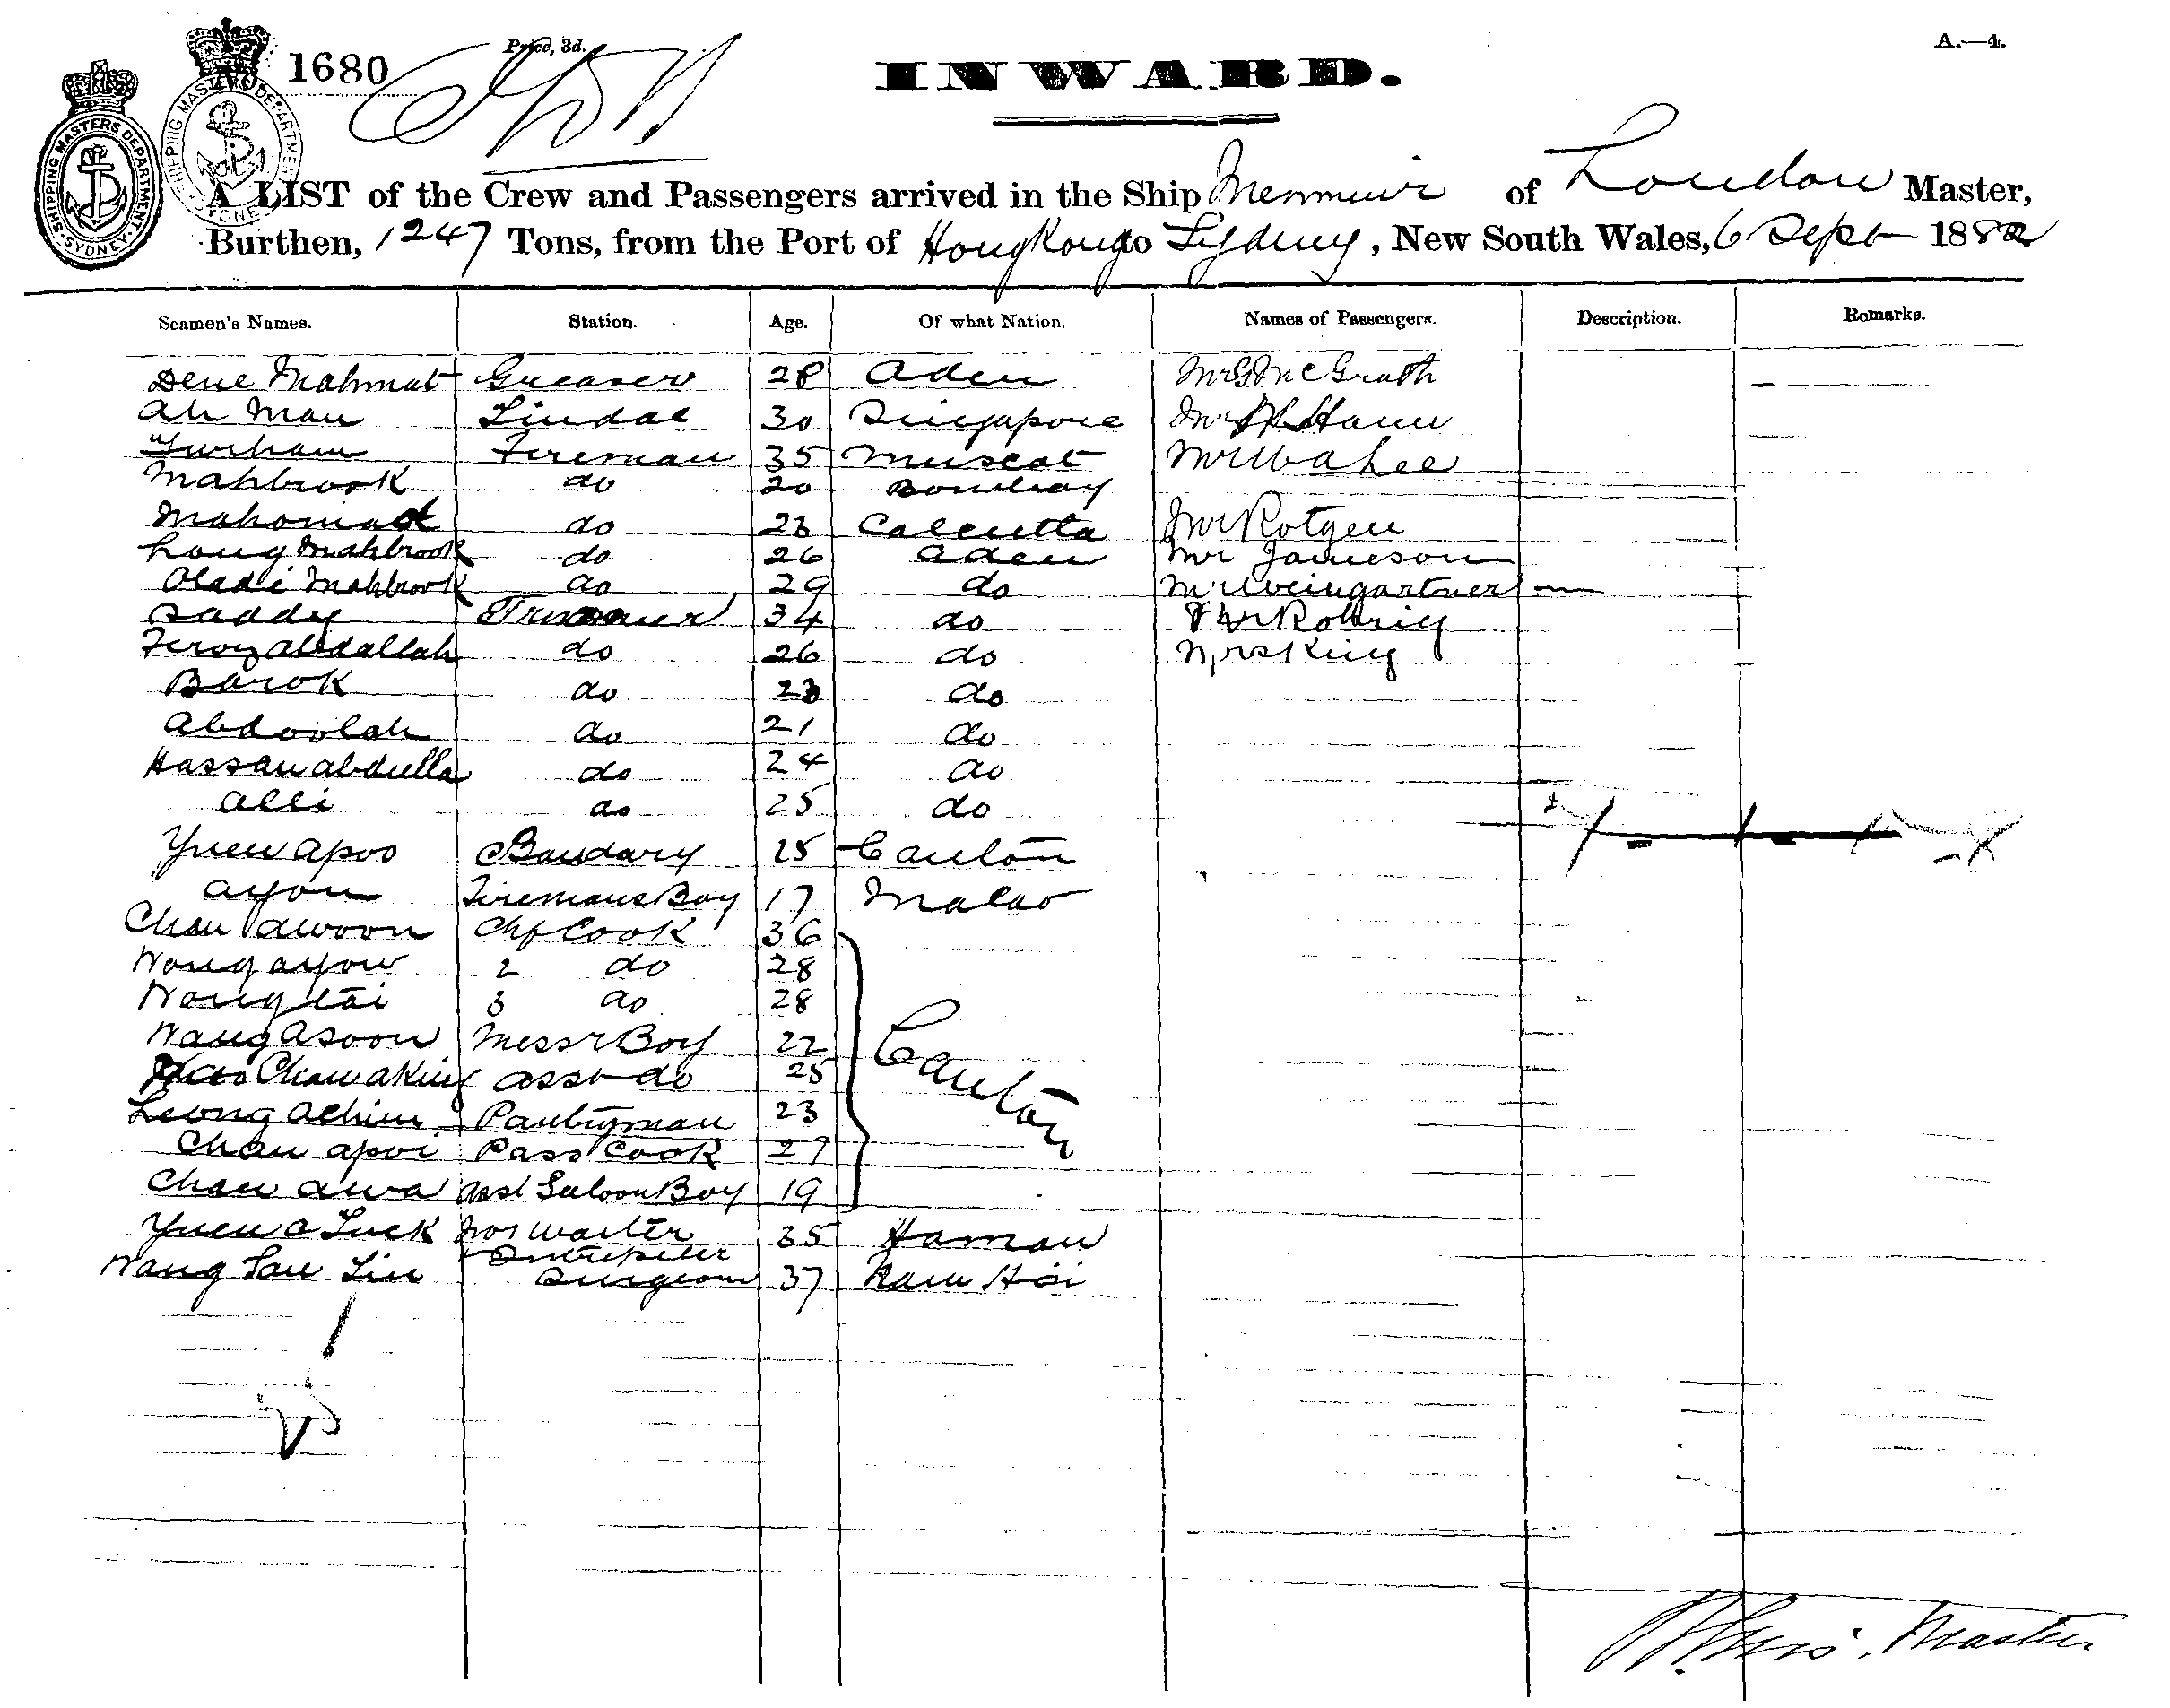 No 1680
Price, 3d.
INWARD.
A.—4.
SHIPPING MASTERS DEPARTMENT
SYDNEY
SHIPPING MASTERS DEPARTMENT
SYDNEY
A LIST of the Crew and Passengers arrived in the Ship Menmuir of London Master,
Burthen, 1247 Tons, from the Port of HongKong to Sydney, New South Wales, 6 Sept 1882
Seamen's Names. Station. Age. Of what Nation. Names of Passengers. Description. Remarks.
Dene Mahmat Greaser 28 Aden Mr G McGrath
Ah Man Tindal 30 Singapore Mr Hann
Furham Fireman 35 Muscat Mr Wahlee
Mahbrook do 20 Bombay
Mahomad do 23 Calcutta Mr Rotgen
Long Mahbrook do 26 Aden Mr Jameson
Aladi Mahbrook do 29 do Mr Weingartner
Saddy Trimmer 34 do Mr Rohrig
Feroz Abdallah do 26 do Mrs King
Barok do 23 do
Abdoolah do 21 do
Hassan Abdulla do 24 do
Alli do 25 do
Yuen Apoo Bandary 25 Canton
Ayon Firemans Boy 17 Macao
Chan Awoon Chf Cook 36
Wong Ayow 2 do 28
Wong tai 3 do 28
Wang Asoon Messr Boy 22 Canton
Chaw aKing asst do 25
Leong Achim Pantryman 23
Chan apoi Pass Cook 27
Chan awa Asst Saloon Boy 19
Yuen a Luck Waiter 35 Haman
Wang San Lin Interpreter Surgeon 37 Nam Hoi
Master